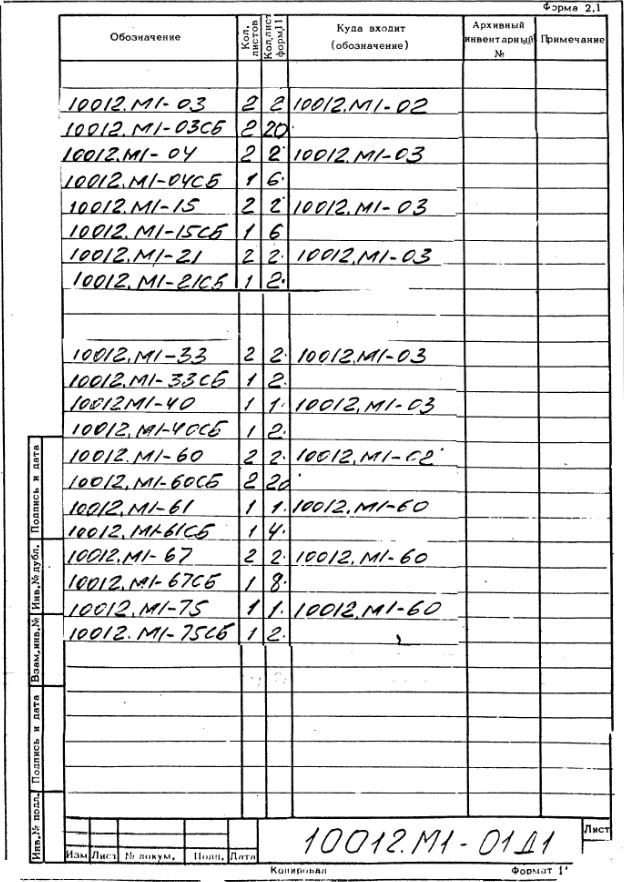 Форма 2.1
Обозначение Кол. листов Кол.лист форм.11 Куда входит (обозначение) Архивный инвентарный № Примечание
10012.М1-03 2 2 10012.М1-02
10012.М1-03СБ 2 20
10012.М1-04 2 2 10012.М1-03
10012.М1-04СБ 1 6
10012.М1-15 2 2 10012.М1-03
10012.М1-15СБ 1 6
10012.М1-21 2 2 10012.М1-03
10012.М1-21СБ 1 2
10012.М1-33 2 2 10012.М1-03
10012.М1-33СБ 1 2
10012М1-40 1 1 10012.М1-03
10012.М1-40СБ 1 2
10012.М1-60 2 2 10012.М1-02
10012.М1-60СБ 2 20
10012.М1-61 1 1 10012.М1-60
10012.М1-61СБ 1 4
10012.М1-67 2 2 10012.М1-60
10012.М1-67СБ 1 8
10012.М1-75 1 1 10012.М1-60
10012.М1-75СБ 1 2
Подпись и дата
Инв.№ дубл.
Взам.инв.№
Подпись и дата
Инв.№ подл.
Изм Лист № докум. Подп. Дата
10012.М1-01Д1
Лист
Копировал Формат